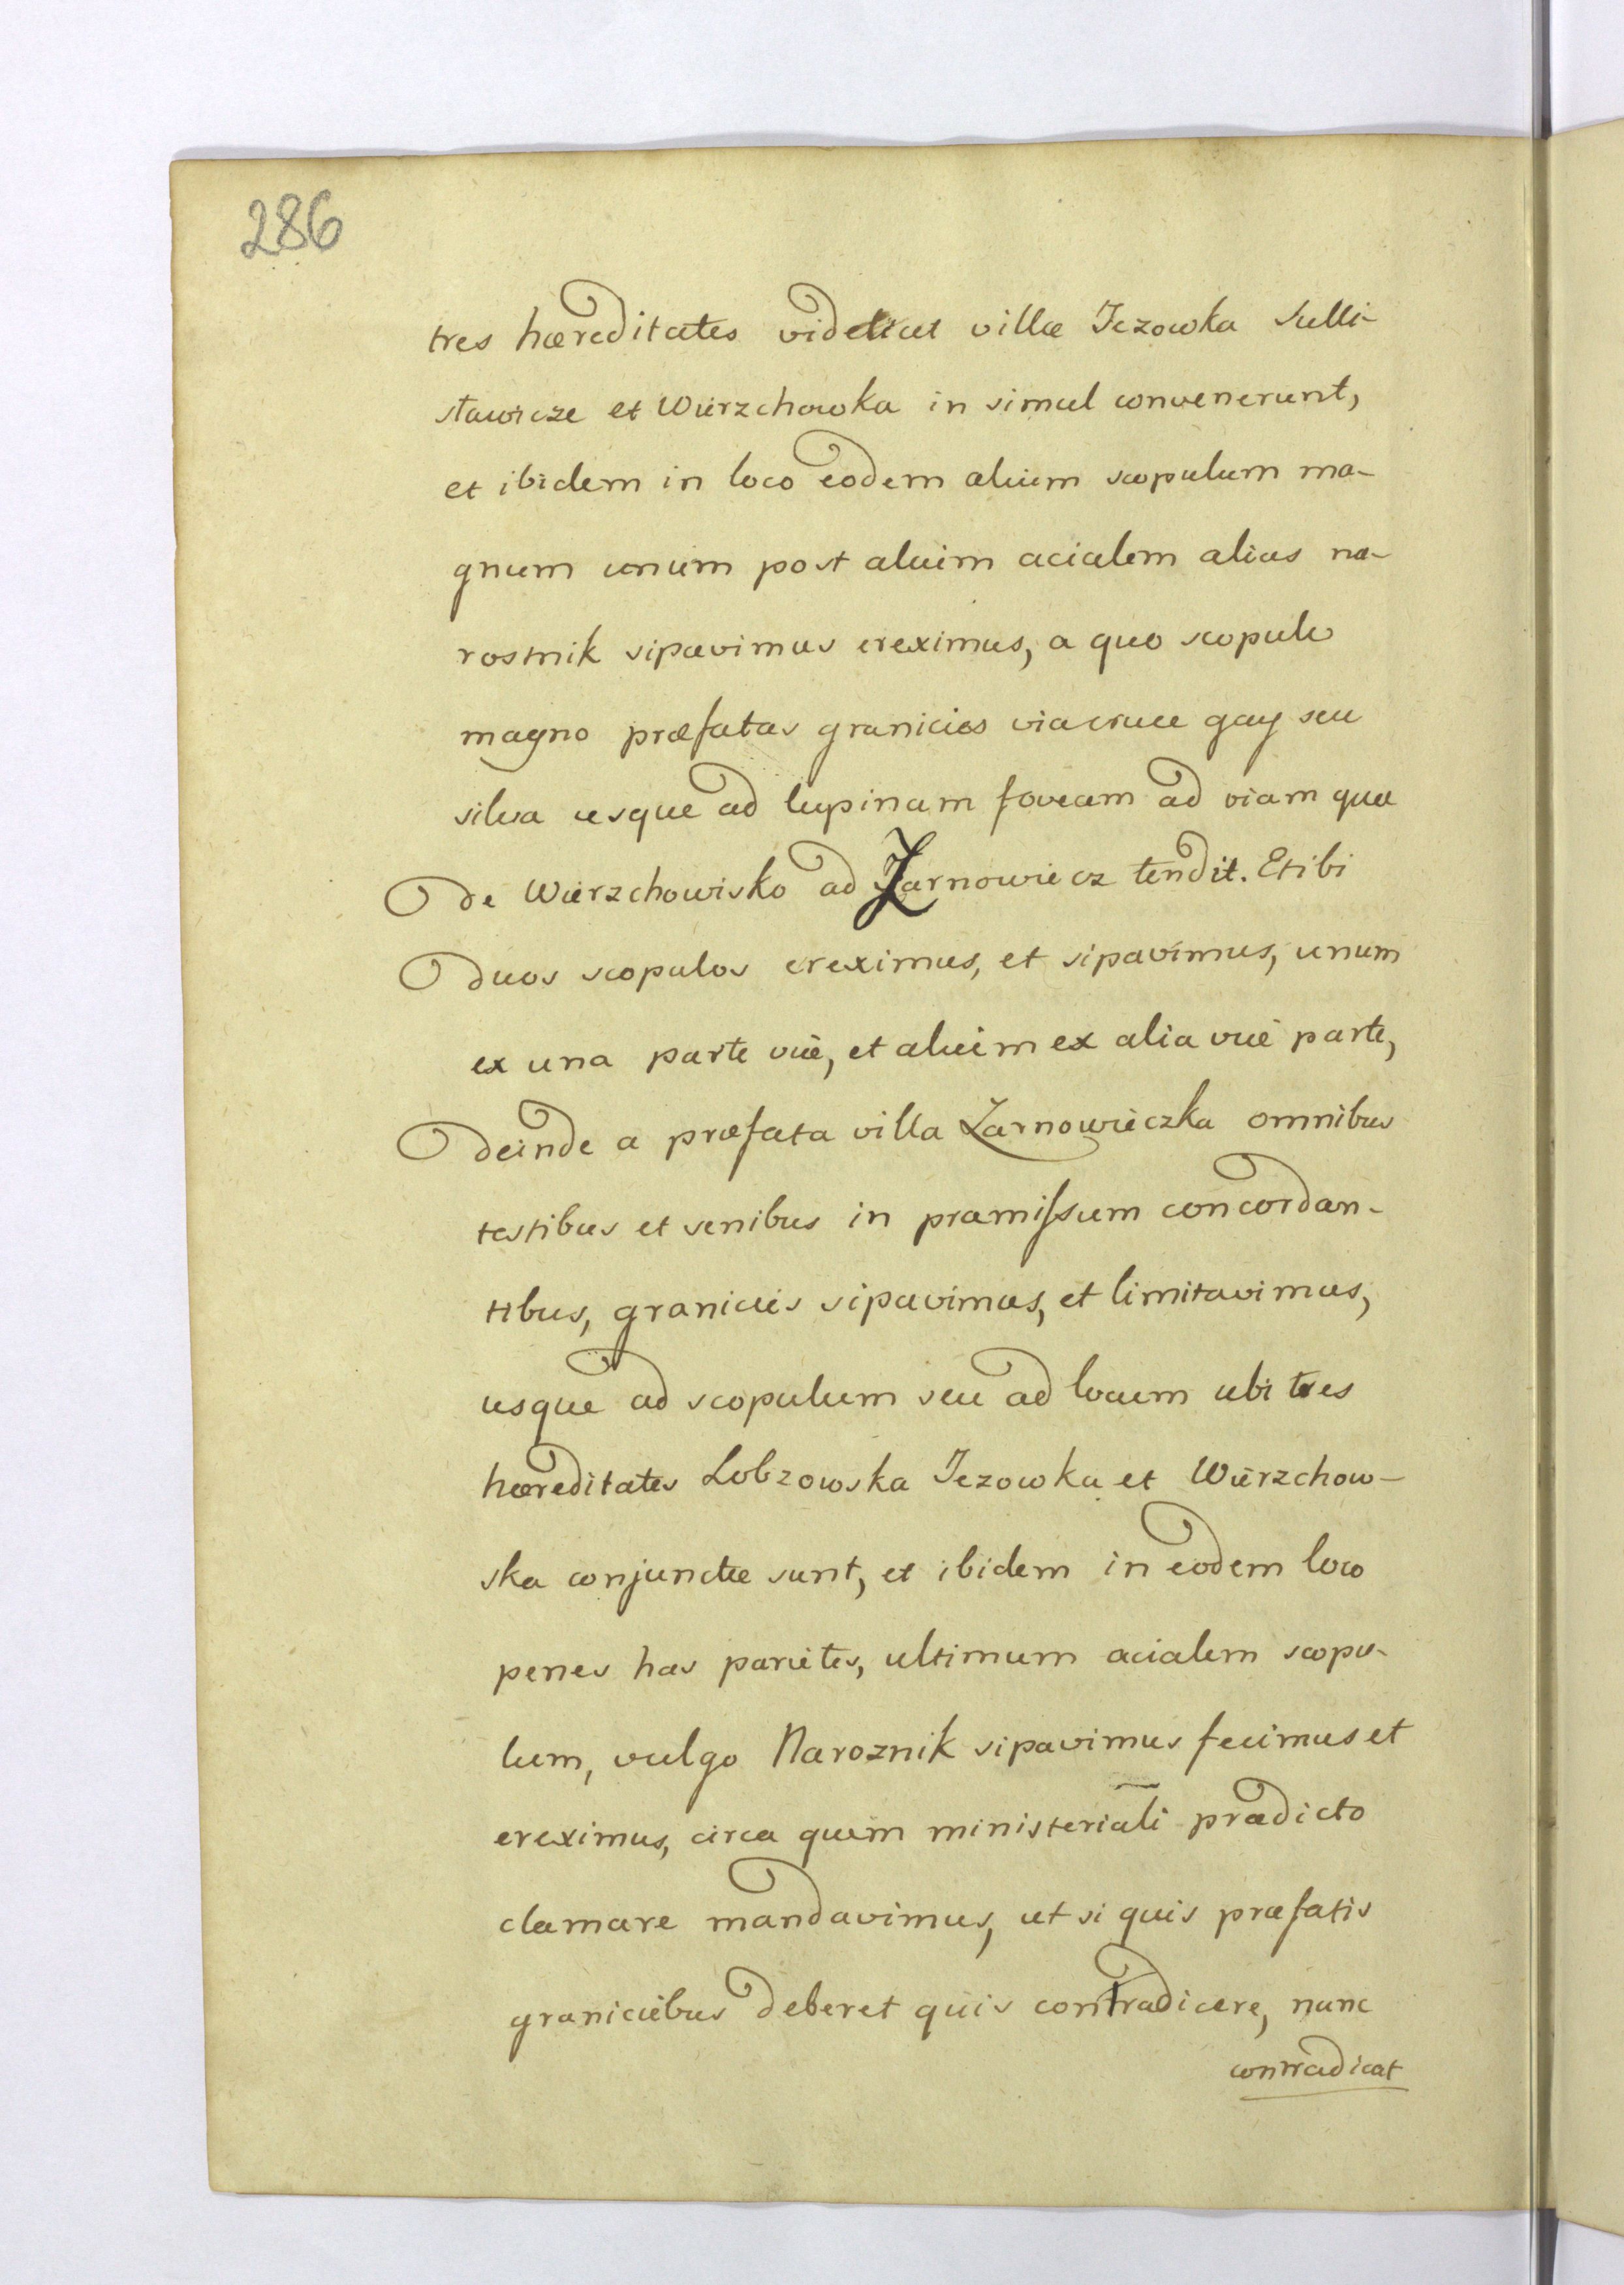 286
tres hæreditates videlicet villæ Jezowka Sulli-
stawicze et Wierzchowka in simul convenerunt,
et ibidem in loco eodem alium scopulum ma-
gnum unum post alium acialem alias na-
rostnik sipavimus ereximus, a quo scopulo
magno præfatas granicies via cruce gay seu
silva usque ad lupinam foveam ad viam quæ
de Wierzchowisko ad Zarnowiecz tendit. Et ibi
duos scopulos ereximus, et sipavimus, unum
ex una parte viæ, et alium ex alia viæ parte,
deinde a præfata villa Zarnowieczka omnibus
testibus et senibus in præmissum concordan-
tibus, granicies sipavimus, et limitavimus,
usque ad scopulum seu ad locum ubi tres
hæreditates Lobzowska Jezowka et Wierzchow-
ska conjunctæ sunt, et ibidem in eodem loco
penes has parietes, ultimum acialem scopu-
lum, vulgo Naroznik sipavimus fecimus et
ereximus, circa quem ministeriali prædicto
clamare mandavimus, ut si quis præfatis
graniciebus deberet quis contradicere, nunc
contradicat